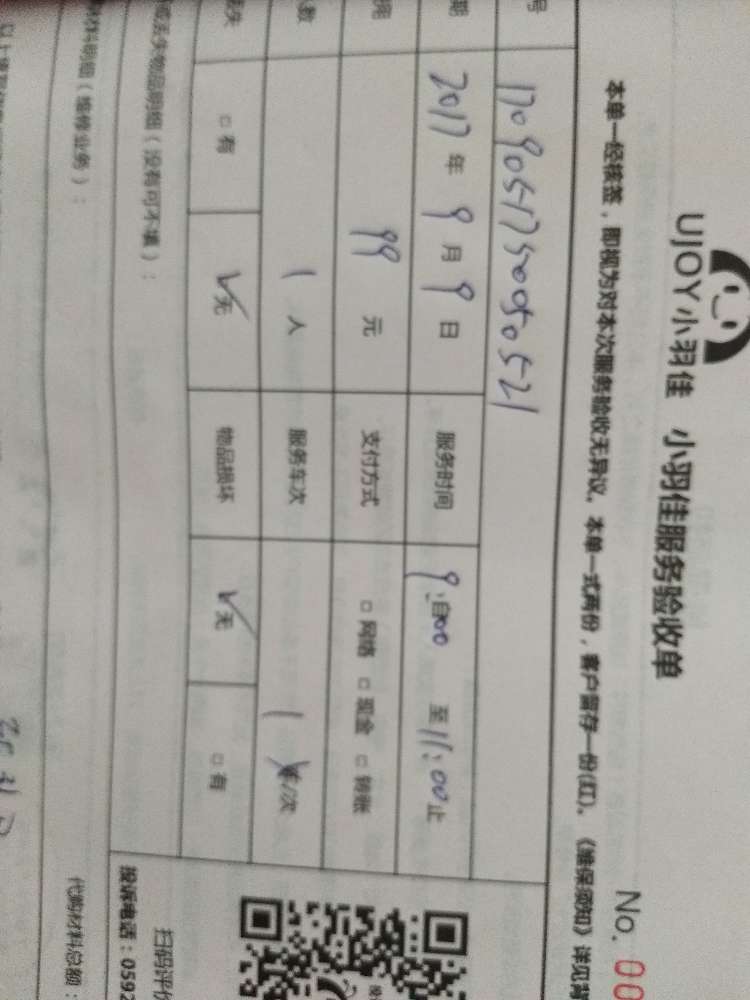 UJOY小羽佳 小羽佳服务验收单
No. 00
本单一经核签，即视为对本次服务验收无异议。本单一式两份，客户留存一份(红)。《维保须知》详见背
号 1709051750050521
期 2017 年 9 月 9 日 服务时间 9:自00 至 11:00 止
用 99 元 支付方式 □ 网络 □ 现金 □ 转账
数 1 人 服务车次 1 车/次
丢失 □ 有 √无 物品损坏 √无 □ 有
或丢失物品明细（没有可不填）：
扫码评价
投诉电话：0592
材料明细（维修业务）：
代购材料总额：